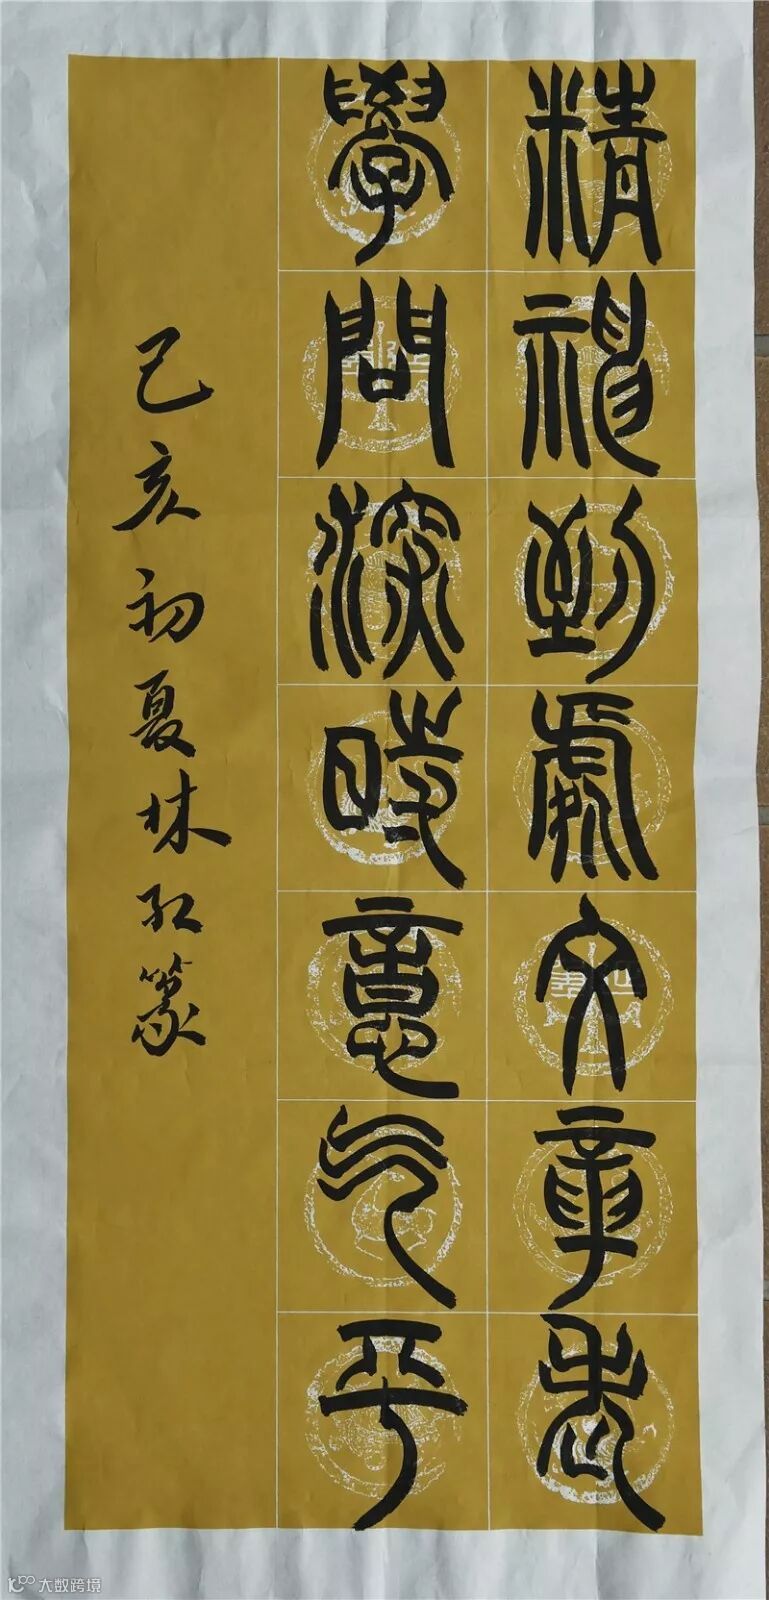 精神到處文章老
學問深時意气平
己亥初夏林红篆
大数跨境